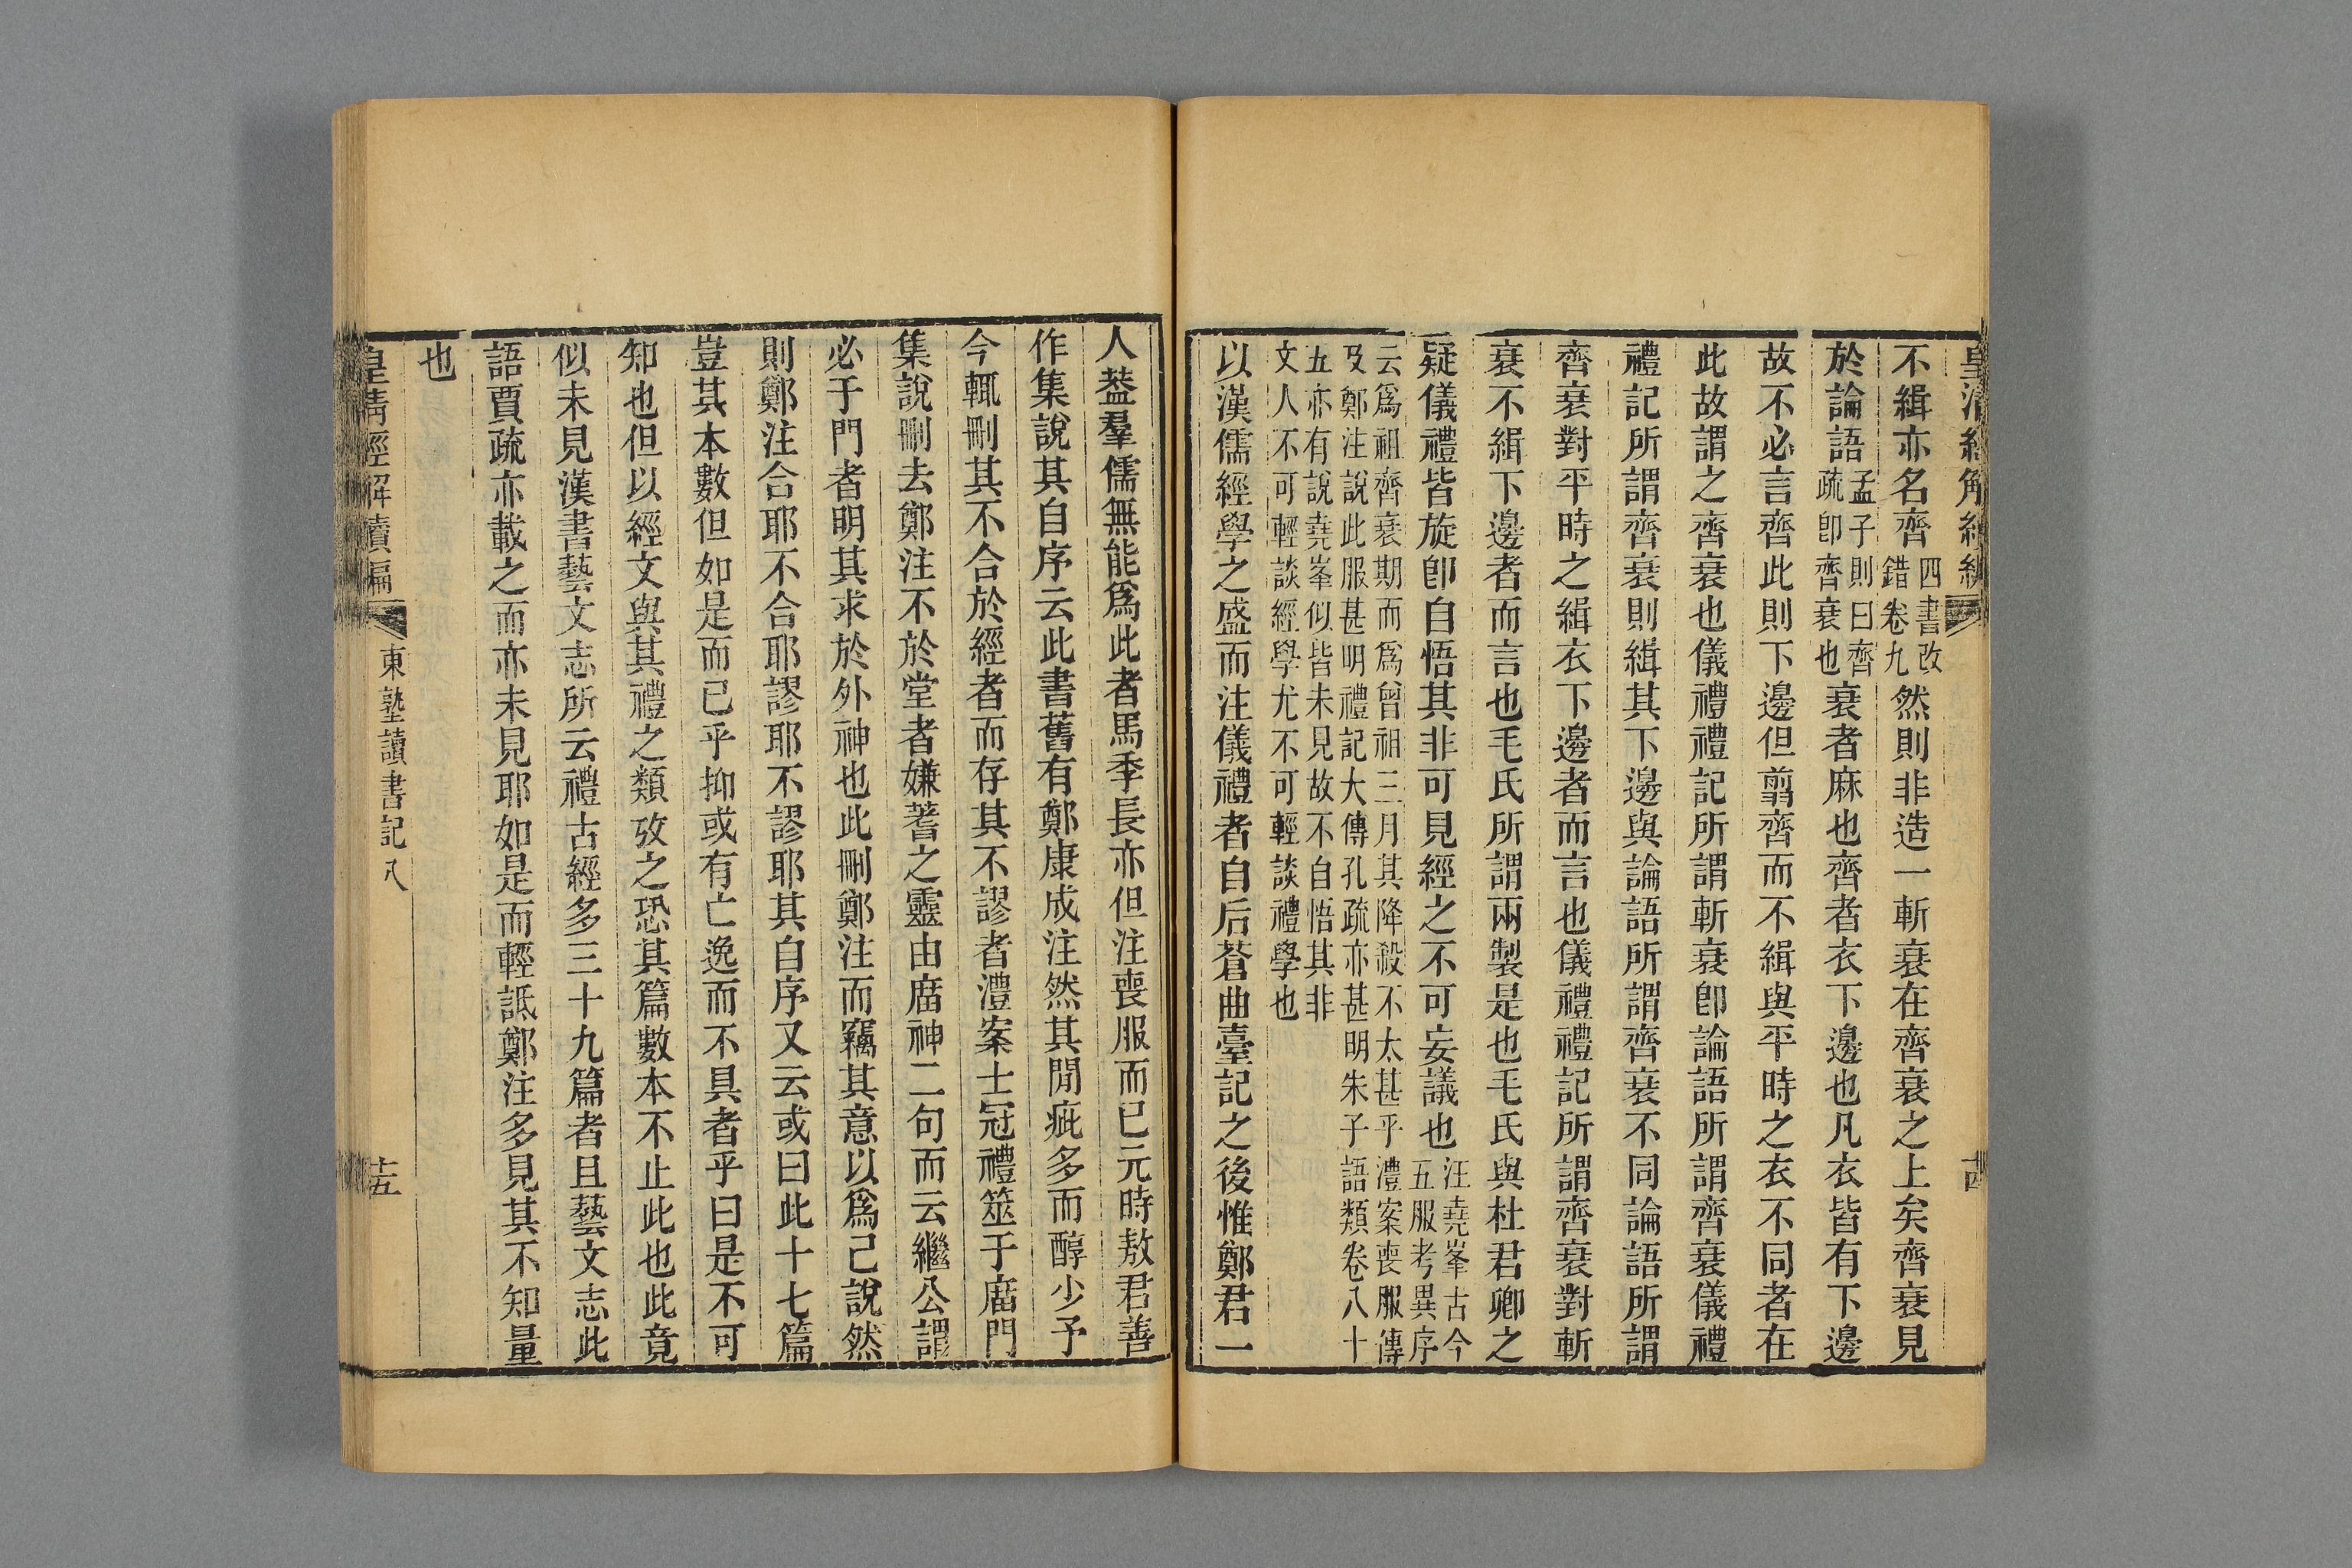 皇清經解續編
十四
不緝亦名齊四書改錯卷九然則非造一斬衰在齊衰之上矣齊衰見
於論語孟子則曰齊疏卽齊衰也衰者麻也齊者衣下邊也凡衣皆有下邊
故不必言齊此則下邊但翦齊而不緝與平時之衣不同者在
此故謂之齊衰也儀禮禮記所謂斬衰卽論語所謂齊衰儀禮
禮記所謂齊衰則緝其下邊與論語所謂齊衰不同論語所謂
齊衰對平時之緝衣下邊者而言也儀禮禮記所謂齊衰對斬
衰不緝下邊者而言也毛氏所謂兩製是也毛氏與杜君卿之
疑儀禮皆旋卽自悟其非可見經之不可妄議也汪堯峯古今五服考異序
云爲祖齊衰期而爲曾祖三月其降殺不太甚乎澧案喪服傳
及鄭注說此服甚明禮記大傳孔疏亦甚明朱子語類卷八十
五亦有說堯峯似皆未見故不自悟其非
文人不可輕談經學尤不可輕談禮學也
以漢儒經學之盛而注儀禮者自后蒼曲臺記之後惟鄭君一
人葢羣儒無能爲此者馬季長亦但注喪服而已元時敖君善
作集說其自序云此書舊有鄭康成注然其閒疵多而醇少予
今輒刪其不合於經者而存其不謬者澧案士冠禮筮于庿門
集說刪去鄭注不於堂者嫌蓍之靈由庿神二句而云繼公謂
必于門者明其求於外神也此刪鄭注而竊其意以爲己說然
則鄭注合耶不合耶謬耶不謬耶其自序又云或曰此十七篇
豈其本數但如是而已乎抑或有亡逸而不具者乎曰是不可
知也但以經文與其禮之類攷之恐其篇數本不止此也此竟
似未見漢書藝文志所云禮古經多三十九篇者且藝文志此
語賈疏亦載之而亦未見耶如是而輕詆鄭注多見其不知量
也
皇清經解續編
東塾讀書記八
十五